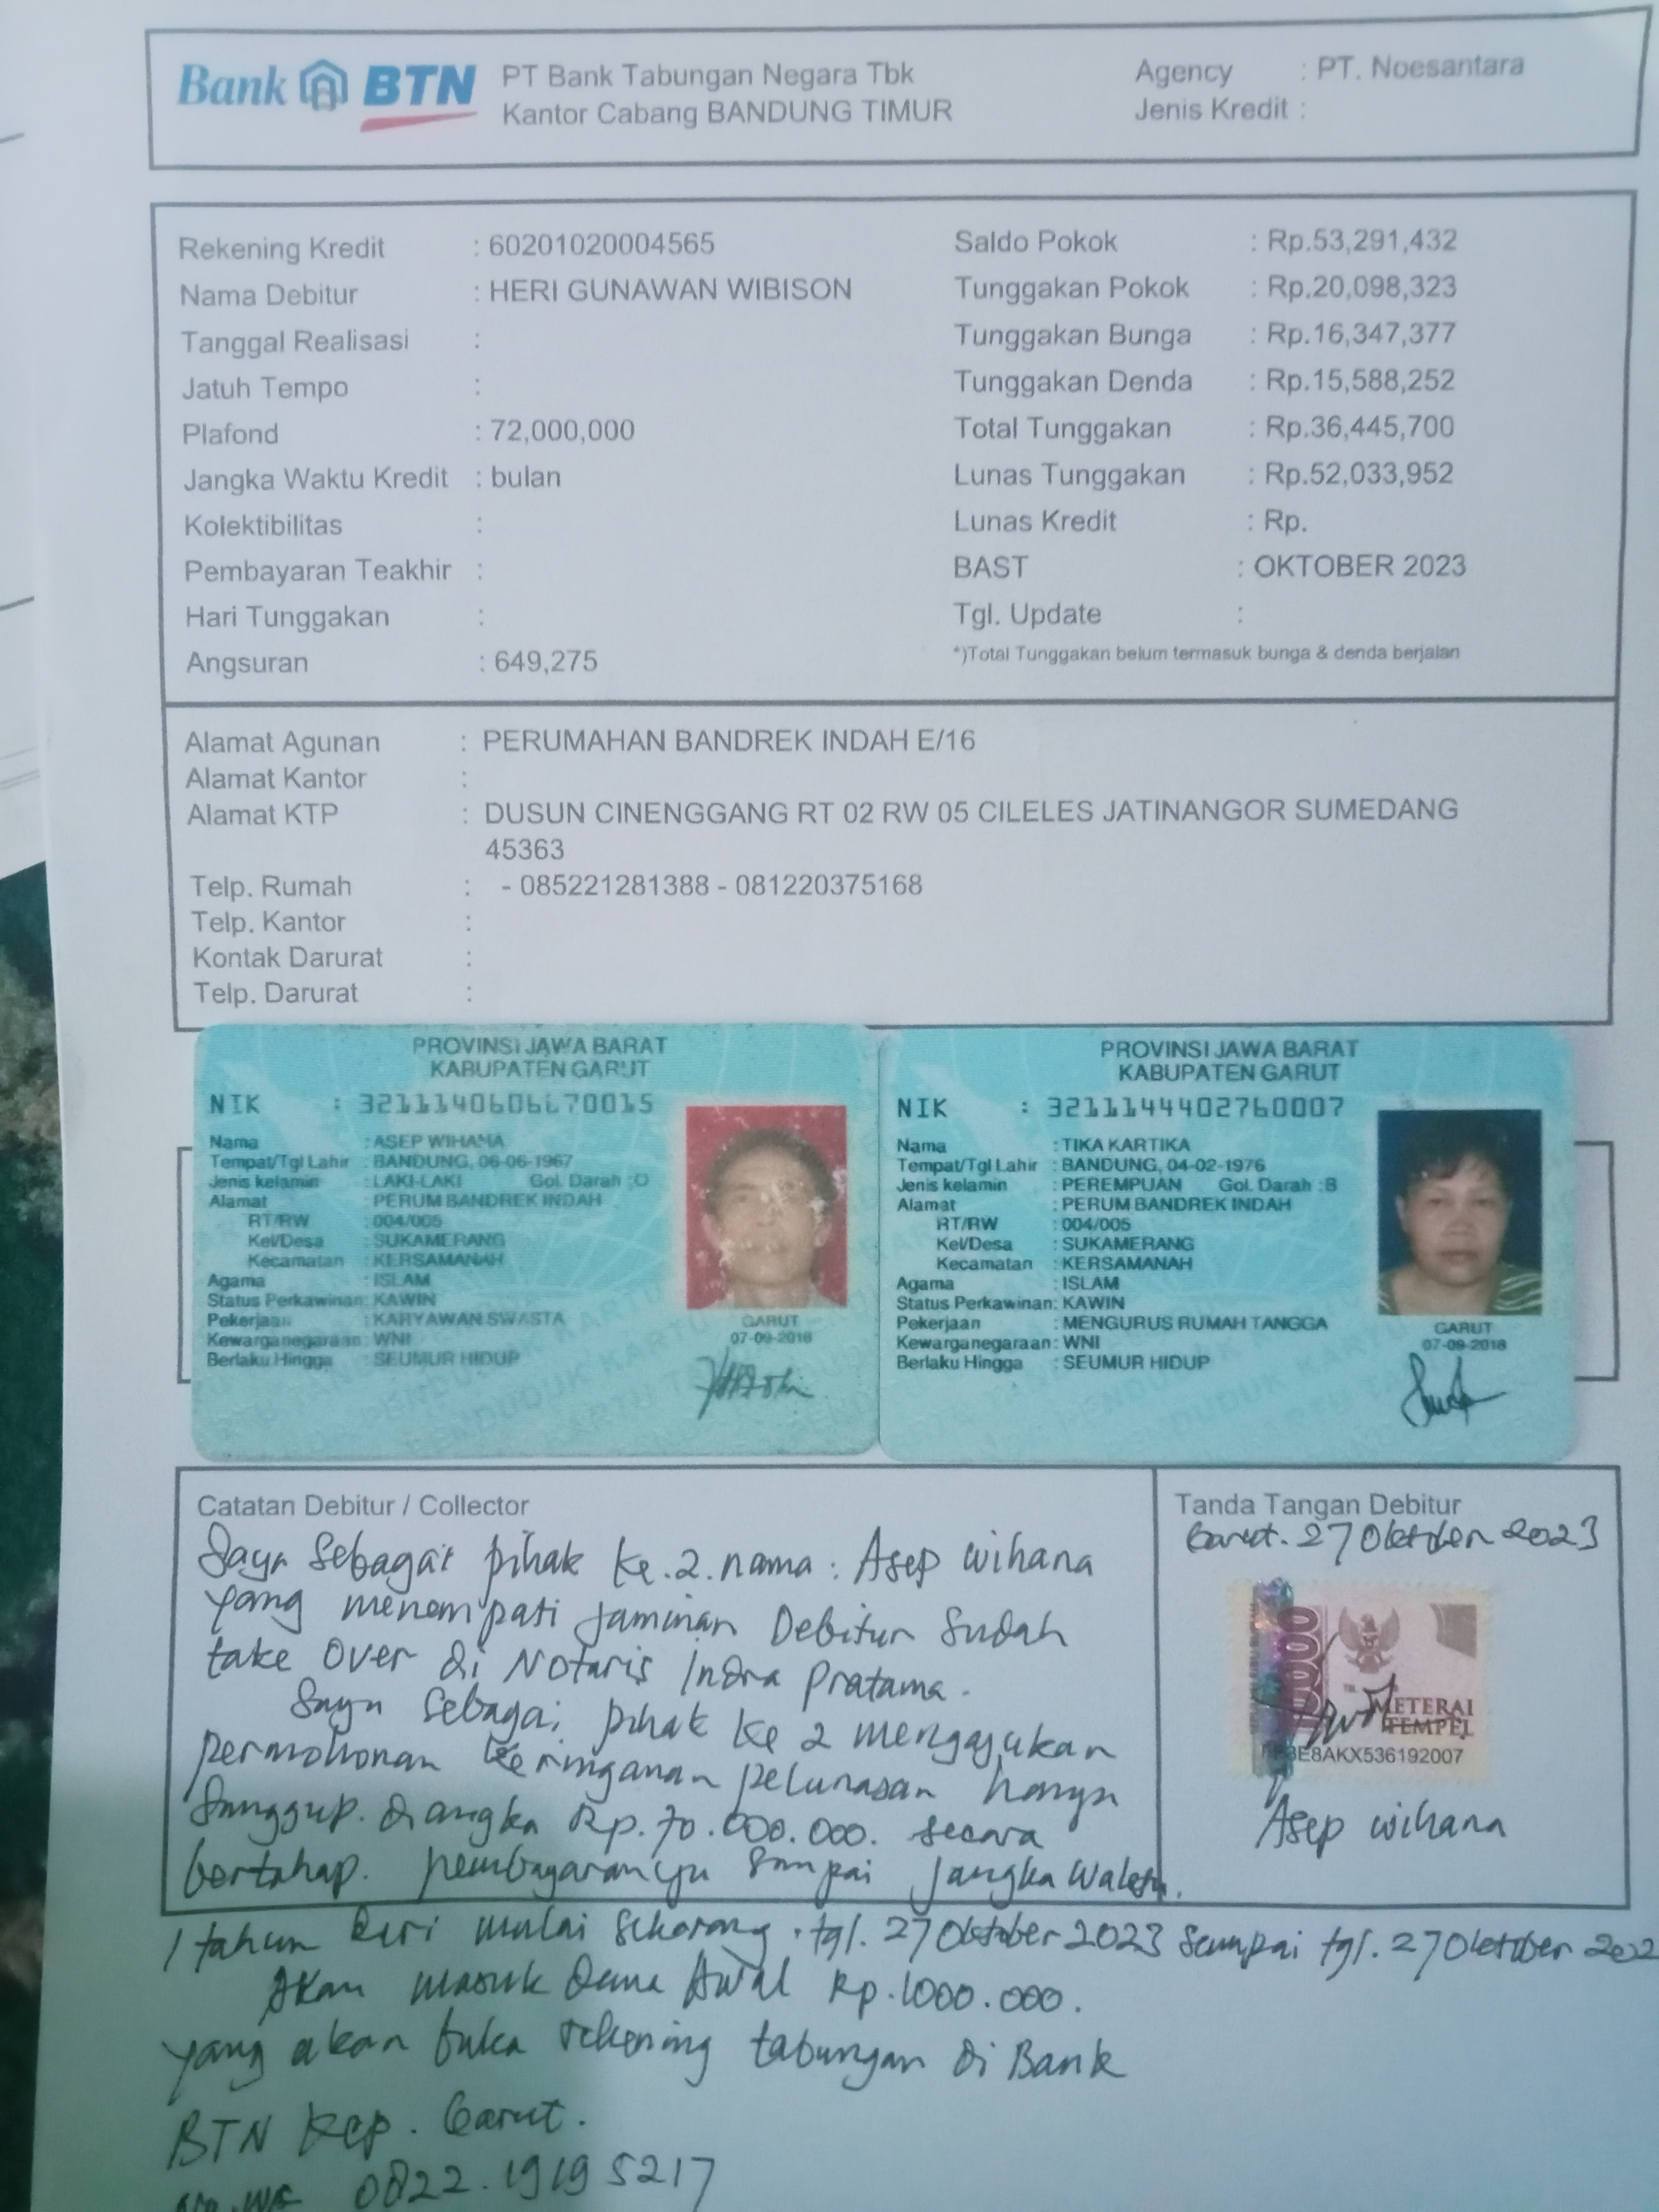 Bank BTN PT Bank Tabungan Negara Tbk
Kantor Cabang BANDUNG TIMUR
Agency : PT. Noesantara
Jenis Kredit :
Rekening Kredit : 60201020004565
Nama Debitur : HERI GUNAWAN WIBISON
Tanggal Realisasi :
Jatuh Tempo :
Plafond : 72,000,000
Jangka Waktu Kredit : bulan
Kolektibilitas :
Pembayaran Teakhir :
Hari Tunggakan :
Angsuran : 649,275
Saldo Pokok : Rp.53,291,432
Tunggakan Pokok : Rp.20,098,323
Tunggakan Bunga : Rp.16,347,377
Tunggakan Denda : Rp.15,588,252
Total Tunggakan : Rp.36,445,700
Lunas Tunggakan : Rp.52,033,952
Lunas Kredit : Rp.
BAST : OKTOBER 2023
Tgl. Update :
*)Total Tunggakan belum termasuk bunga & denda berjalan
Alamat Agunan : PERUMAHAN BANDREK INDAH E/16
Alamat Kantor :
Alamat KTP : DUSUN CINENGGANG RT 02 RW 05 CILELES JATINANGOR SUMEDANG
45363
Telp. Rumah : - 085221281388 - 081220375168
Telp. Kantor :
Kontak Darurat :
Telp. Darurat :
PROVINSI JAWA BARAT
KABUPATEN GARUT
NIK : 3211140606670015
Nama : ASEP WIHANA
Tempat/Tgl Lahir : BANDUNG, 06-06-1967
Jenis kelamin : LAKI-LAKI Gol. Darah :O
Alamat : PERUM BANDREK INDAH
RT/RW : 004/005
Kel/Desa : SUKAMERANG
Kecamatan : KERSAMANAH
Agama : ISLAM
Status Perkawinan: KAWIN
Pekerjaan : KARYAWAN SWASTA
Kewarganegaraan: WNI
Berlaku Hingga : SEUMUR HIDUP
GARUT
07-09-2018
PROVINSI JAWA BARAT
KABUPATEN GARUT
NIK : 3211144402760007
Nama : TIKA KARTIKA
Tempat/Tgl Lahir : BANDUNG, 04-02-1976
Jenis kelamin : PEREMPUAN Gol. Darah :B
Alamat : PERUM BANDREK INDAH
RT/RW : 004/005
Kel/Desa : SUKAMERANG
Kecamatan : KERSAMANAH
Agama : ISLAM
Status Perkawinan: KAWIN
Pekerjaan : MENGURUS RUMAH TANGGA
Kewarganegaraan: WNI
Berlaku Hingga : SEUMUR HIDUP
GARUT
07-09-2018
Catatan Debitur / Collector
Saya sebagai pihak ke.2.nama : Asep wihana
yang menempati jaminan Debitur Sudah
take over di Notaris Indra Pratama.
Saya sebagai pihak ke 2 mengajukan
permohonan keringanan pelunasan hanya
Sanggup. diangka Rp.70.000.000. secara
bertahap. pembayarannya sampai jangka waktu.
1 tahun dari mulai sekarang. tgl. 27 Oktober 2023 Sampai tgl. 27 Oktober
Akan masuk Dana Awal Rp.1000.000.
yang akan buka rekening tabungan di Bank
BTN Kcp. Garut.
No.WA 0822.1919 5217
Tanda Tangan Debitur
Garut. 27 Oktober 2023
METERAI
TEMPEL
E8AKX536192007
Asep wihana